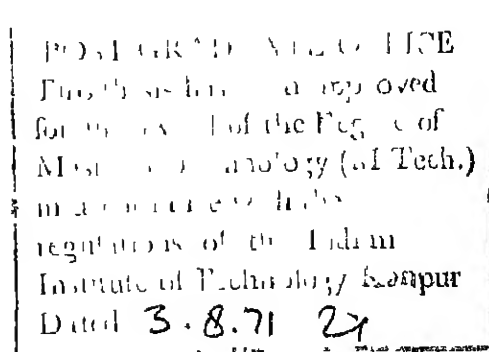 POST GRADUATE OFFICE
This thesis has been approved
for the award of the Degree of
Master of Technology (M.Tech.)
in accordance with the
regulations of the Indian
Institute of Technology Kanpur
Dated 3.8.71 24